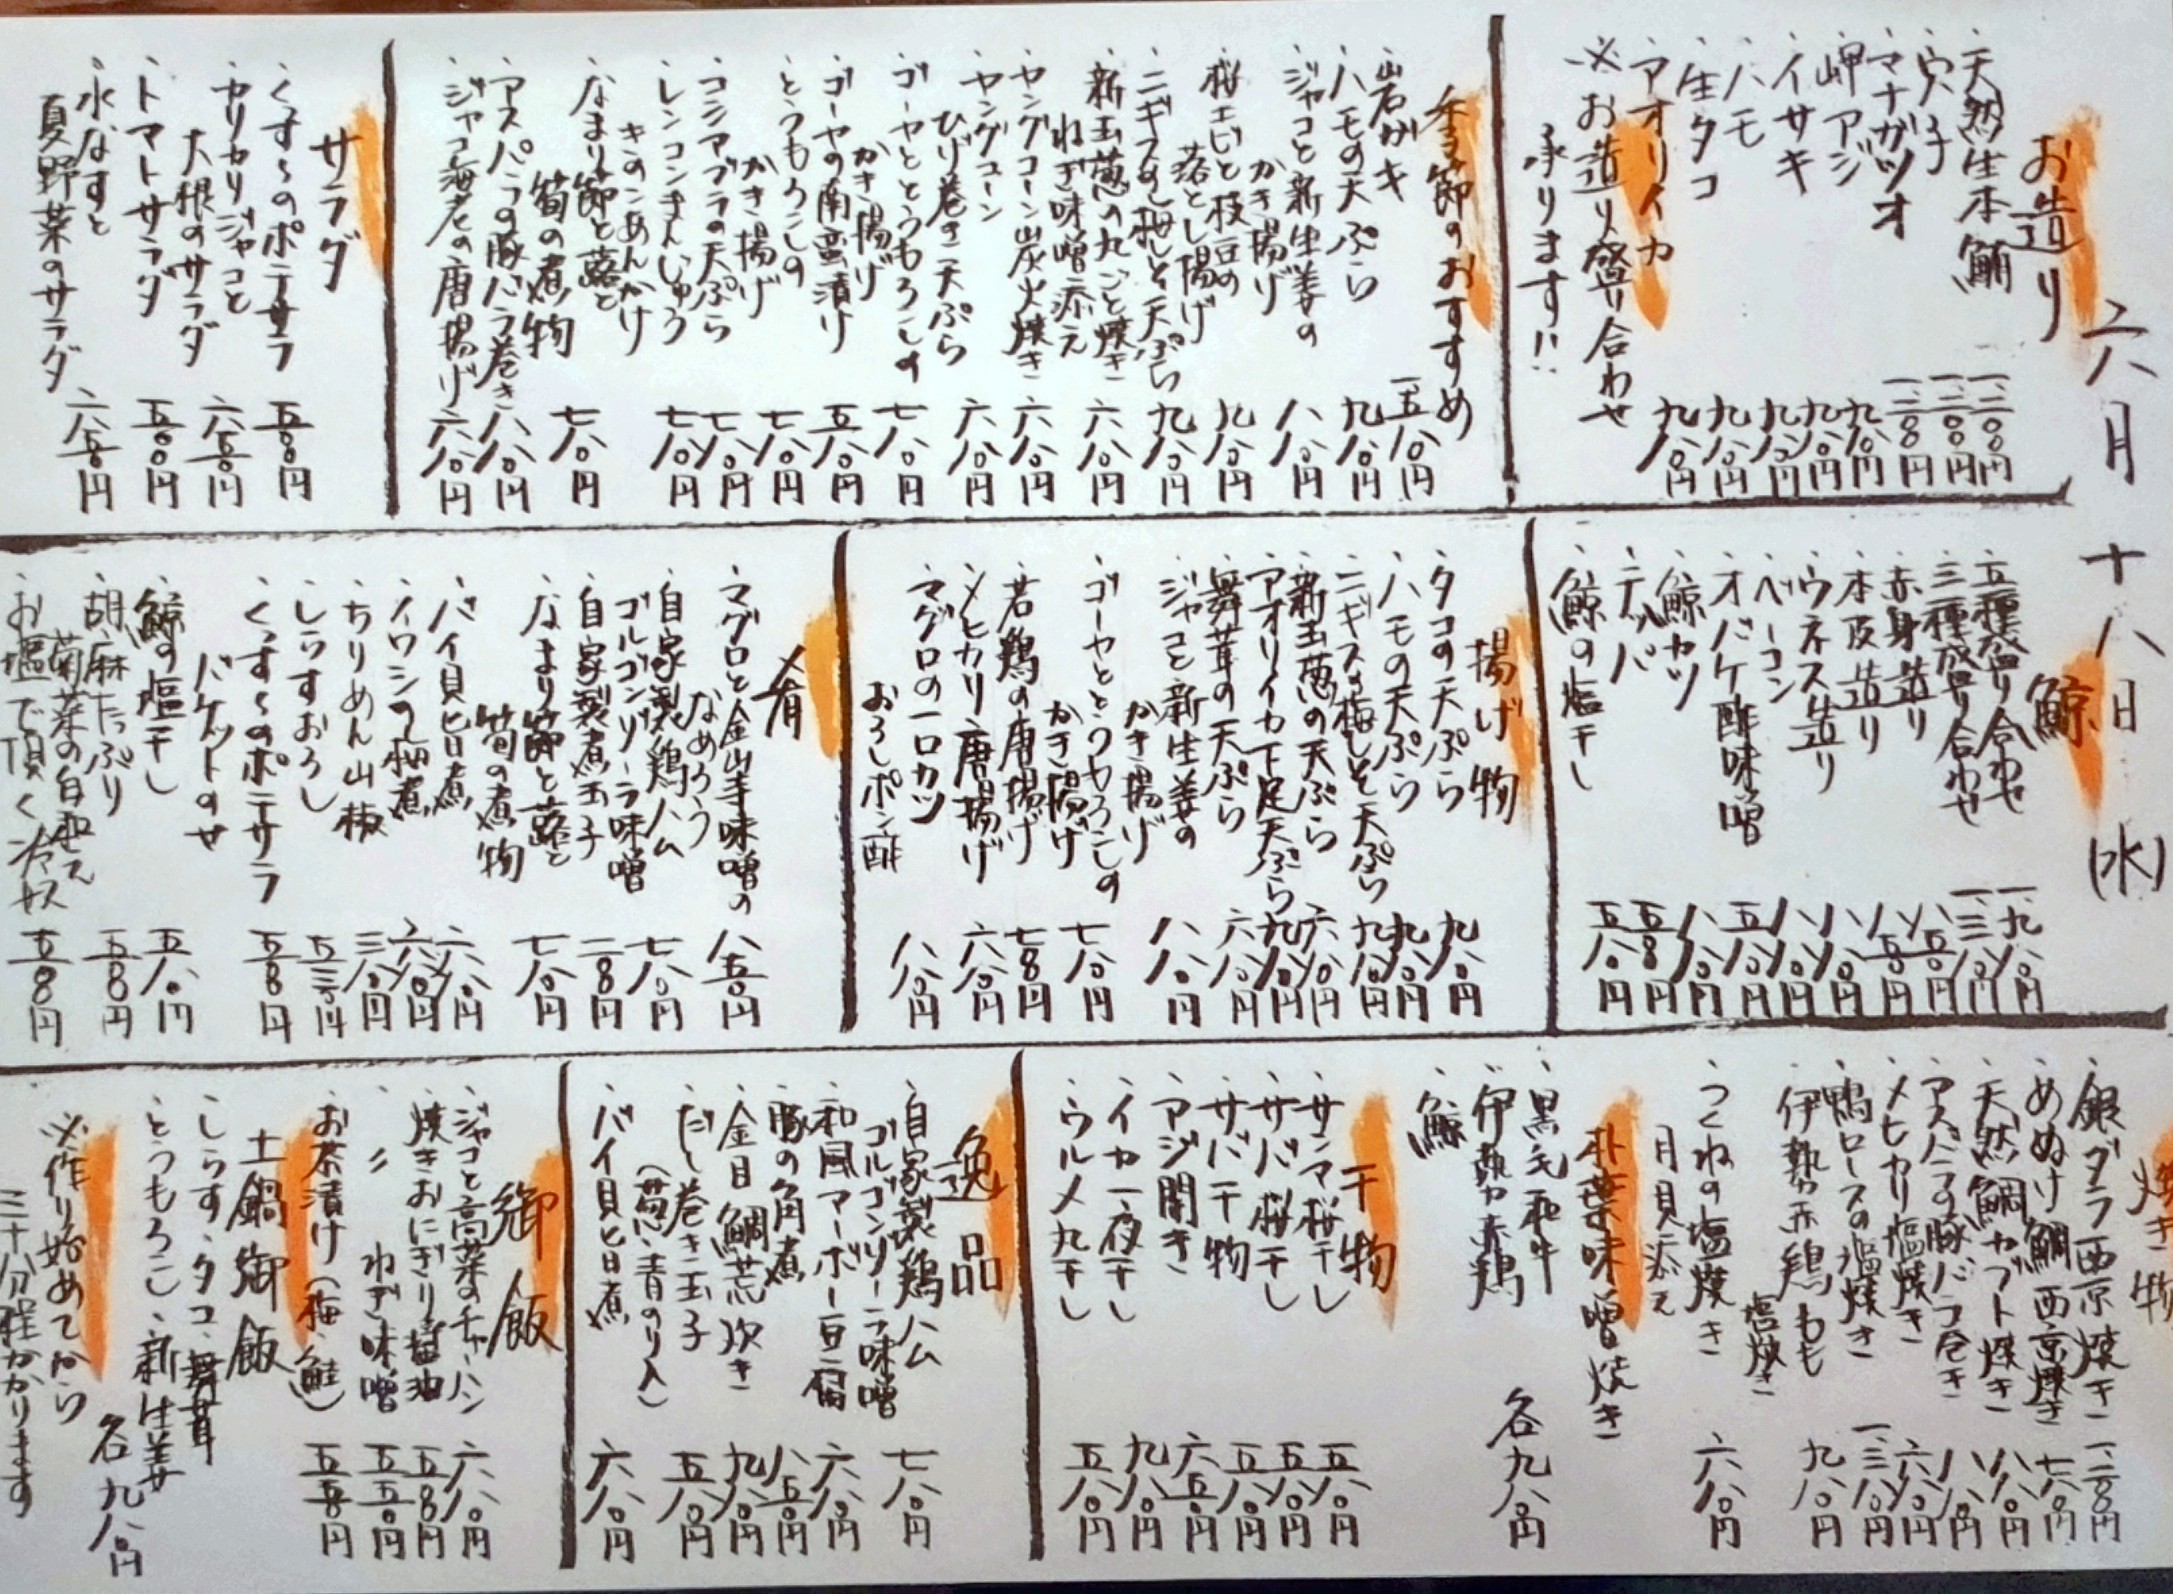 六月十八日(水)
お造り
・天然生本鮪 一二〇〇円
・穴子 一二〇〇円
・マナガツオ 一二〇〇円
・岬アジ 九八〇円
・イサキ 九八〇円
・ハモ 九八〇円
・生タコ 九八〇円
・アオリイカ 九八〇円
※お造り盛り合わせ
承ります!!
季節のおすすめ
・岩ガキ 一五八〇円
・ハモの天ぷら 九八〇円
・ジャコと新生姜の
かき揚げ 八八〇円
・桜エビと枝豆の
落とし揚げ 九八〇円
・ニギスの梅しそ天ぷら 九八〇円
・新玉葱の丸ごと焼き
ねぎ味噌添え 六八〇円
・ヤングコーン炭火焼き 六八〇円
・ヤングコーン
ひげ巻き天ぷら 六八〇円
・ゴーヤととうもろこしの
かき揚げ 七八〇円
・ゴーヤの南蛮漬け 五八〇円
・とうもろこしの
かき揚げ 七八〇円
・コシアブラの天ぷら 七八〇円
・レンコンまんじゅう
きのこあんかけ 七八〇円
・なまり節と蕗と
筍の煮物 七八〇円
・アスパラの豚バラ巻き 八八〇円
・ジャコ海老の唐揚げ 六八〇円
サラダ
・くず〜のポテサラ 五八〇円
・カリカリジャコと
大根のサラダ 六五〇円
・トマトサラダ 五八〇円
・水なすと
夏野菜のサラダ 六五〇円
鯨
・五種盛り合わせ 一、九八〇円
・三種盛り合わせ 一、三八〇円
・赤身造り 八五〇円
・本皮造り 八五〇円
・ウネス造り 八八〇円
・ベーコン 八八〇円
・オバケ酢味噌 五八〇円
・鯨カツ 八八〇円
・テッパ 五八〇円
・鯨の塩干し 五八〇円
揚げ物
・タコの天ぷら 九八〇円
・ハモの天ぷら 九八〇円
・ニギスの梅しそ天ぷら 九八〇円
・新玉葱の天ぷら 六八〇円
・アオリイカ下足天ぷら 九八〇円
・舞茸の天ぷら 六八〇円
・ジャコと新生姜の
かき揚げ 八八〇円
・ゴーヤととうもろこしの
かき揚げ 七八〇円
・若鶏の唐揚げ 七八〇円
・メヒカリ唐揚げ 六八〇円
・マグロの一口カツ
おろしポン酢 八八〇円
肴
・マグロと金山寺味噌の
なめろう 八五〇円
・自家製鶏ハム
ゴルゴンゾーラ味噌 七八〇円
・自家製煮玉子 二八〇円
・なまり節と蕗と
筍の煮物 七八〇円
・バイ貝旨煮 六八〇円
・イワシの梅煮 六八〇円
・ちりめん山椒 三八〇円
・しらすおろし 五三〇円
・くず〜のポテサラ
バケットのせ 五八〇円
・鯨の塩干し 五八〇円
・胡麻たっぷり
菊菜の白和え 五八〇円
・お塩で頂く冷奴 五八〇円
焼き物
・銀ダラ西京焼き 一、二八〇円
・めぬけ鯛西京焼き 七八〇円
・天然鯛カブト焼き 八八〇円
・アスパラの豚バラ巻き 八八〇円
・メヒカリ塩焼き 六八〇円
・鴨ロースの塩焼き 一、三八〇円
・伊勢赤鶏もも
塩焼き 九八〇円
・つくねの塩焼き
月見添え 六八〇円
朴葉味噌焼き
・黒毛和牛
・伊勢赤鶏
・鯨
各九八〇円
干物
・サンマ桜干し 五八〇円
・サバ桜干し 五八〇円
・サバ干物 五八〇円
・アジ開き 六五〇円
・イカ一夜干し 九八〇円
・ウルメ丸干し 五八〇円
逸品
・自家製鶏ハム
ゴルゴンゾーラ味噌 七八〇円
・和風マーボー豆腐 六八〇円
・豚の角煮 八五〇円
・金目鯛荒炊き 九八〇円
・だし巻き玉子
(葱・青のり入) 五八〇円
・バイ貝旨煮 六八〇円
御飯
・ジャコと高菜のチャーハン 六八〇円
・焼きおにぎり醤油 五八〇円
・〃 ねぎ味噌 五五〇円
・お茶漬け(梅・鮭) 五五〇円
土鍋御飯
・しらす・タコ・舞茸
・とうもろこし・新生姜
各九八〇円
※作り始めてから
三十分程かかります